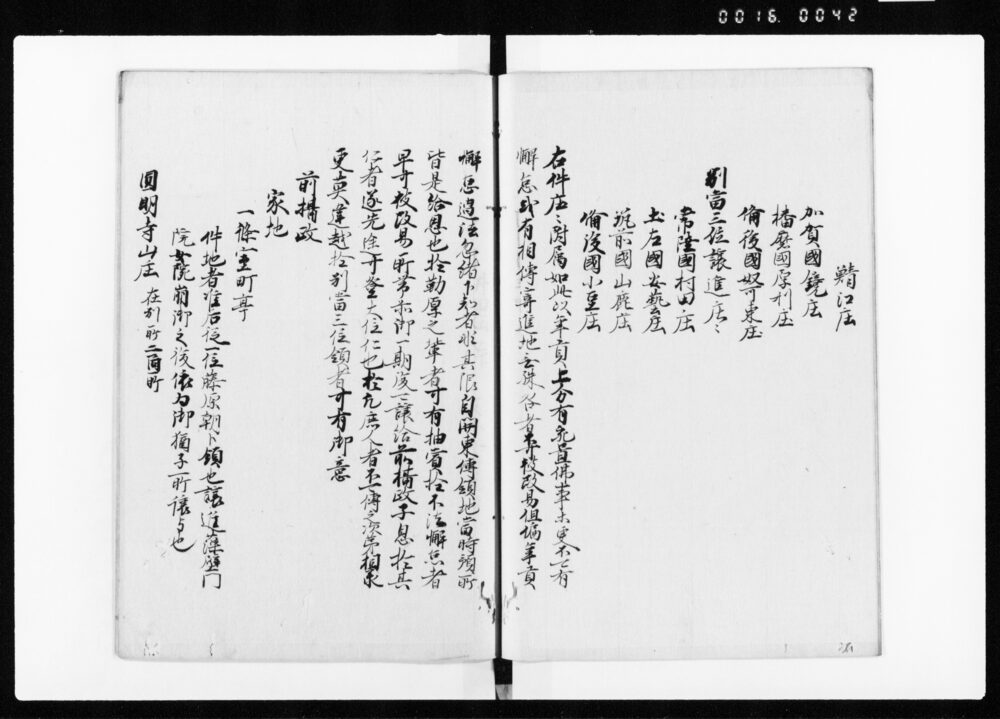 0016 0042
鯖江庄
加賀國鏡庄
播磨國厚利庄
備後國奴可東庄
別當三位讓進庄〻
常陸國村田庄
土左國安藝庄
筑前國山鹿庄
備後國小童庄
右件庄〻附属如此以年貢上分有宛置佛事未更不可有
懈怠或有相傳寄進地無殊咎者莫改易但偏年貢
懈怠違法忽緒下知者非其限自關東傳領地當時預所
皆是給恩也於勤厚之輩者可有抽賞於不法懈怠者
早可被改易所等亦御一期後可讓給前攝政子息於其
仁者遂先途可登大位仁也於凡庶人者不可傳之次第相承
更莫違越於別當三位領者可有御意
前攝政
家地
一條室町亭
件地者准后從一位藤原朝臣領也讓進藻壁門
院女院崩御之後依為御猶子所讓与也
圓明寺山庄 在別所二箇所